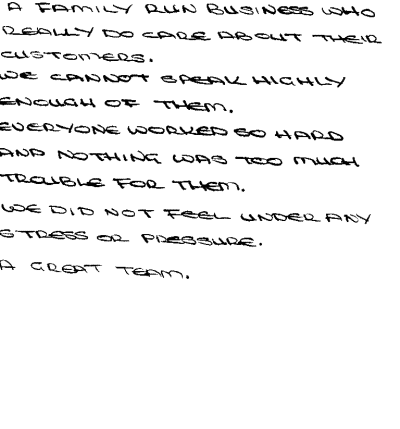 A FAMILY RUN BUSINESS WHO
REALLY DO CARE ABOUT THEIR
CUSTOMERS.
WE CANNOT SPEAK HIGHLY
ENOUGH OF THEM.
EVERYONE WORKED SO HARD
AND NOTHING WAS TOO MUCH
TROUBLE FOR THEM.
WE DID NOT FEEL UNDER ANY
STRESS OR PRESSURE.
A GREAT TEAM.